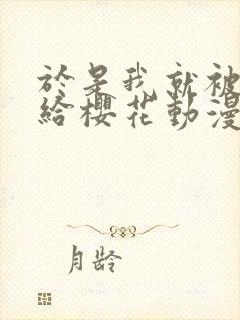 於是我就被
給櫻花動漫
月龄